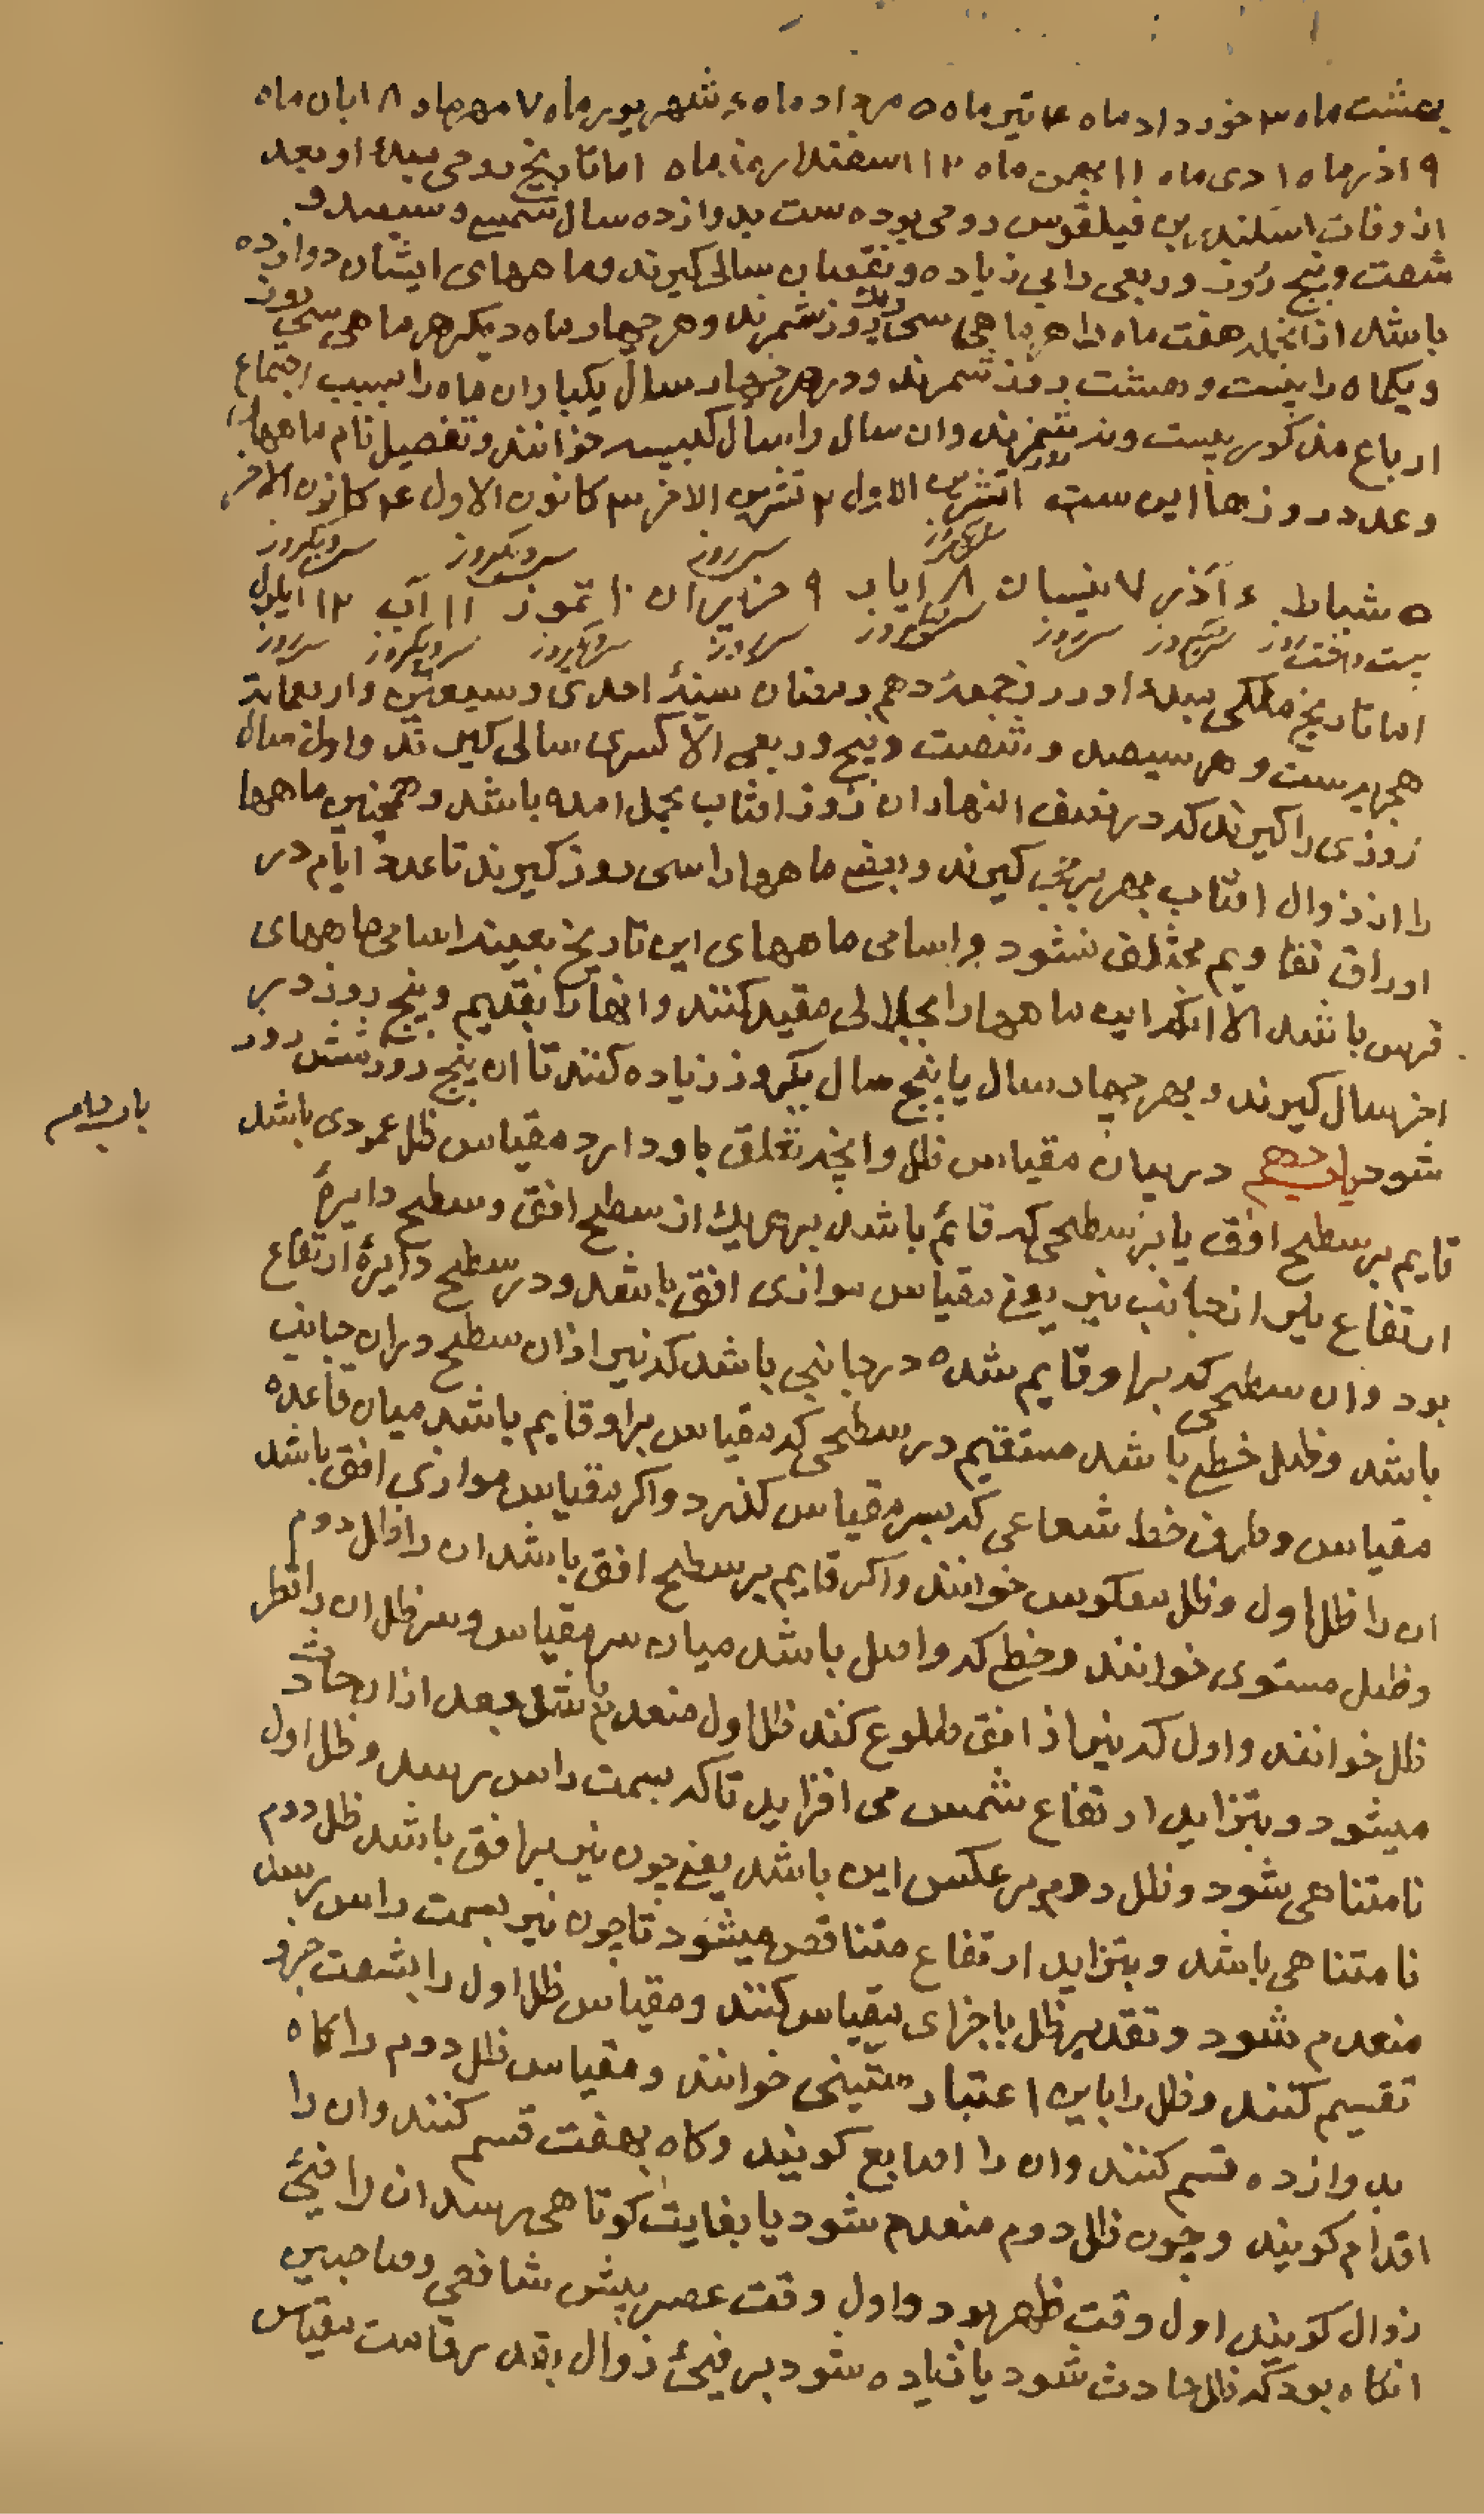 بهشت ماه ۳ خورداد ماه ۴ تیر ماه ۵ مرداد ماه ۶ شهریور ماه ۷ مهر ماه ۸ ابان ماه
۹ اذر ماه ۱۰ دی ماه ۱۱ بهمن ماه ۱۲ اسفندارمذ ماه اما تاریخ رومی مبدا او بعد
از وفات اسکندر بن فیلقوس رومی بوده ست بدوازده سال شمسی و سیصد و
شصت و پنج روز و ربعی را بی زیاده و نقصان سالی کیرند و ماههای ایشان دوازده
باشد از انجمله هفت ماه را هر ماهی سی و یک روز شمرند و هر چهار ماه دیکر هر ماهی سی روز
و یکماه را بیست و هشت روز شمرند و در هر چهار سال یکبار ان ماه را بسبب اجتماع
ارباع مذکور بیست و نه روز شمرند و ان سال را سال کبیسه خوانند و تفصیل نام ماهها
و عدد روزها این ست ۱ تشرین الاول ۲ تشرین الاخر ۳ کانون الاول ۴ کانون الاخر
سی و یکروز سی روز سی و یکروز سی و یکروز
۵ شباط ۶ آذر ۷ نیسان ۸ ایار ۹ حزیران ۱۰ تموز ۱۱ آب ۱۲ ایلول
بیست و هشت روز سی و یکروز سی روز سی و یکروز سی روز سی و یکروز سی و یکروز سی روز
اما تاریخ ملکی مبدا او روز جمعه دهم رمضان سنة احدی و سبعین و اربعمایة
هجریه ست و هر سیصد و شصت و پنج روز و ربعی الا کسری سالی کیرند و اول سال
روزی را کیرند که در نصف النهار ان روز افتاب بحمل امده باشد و همچنین ماهها
را از زوال افتاب بهر برجی کیرند و بعضی ماهها را سی روز کیرند تا عدد ایام در
اوراق تقاویم مختلف نشود و اسامی ماههای این تاریخ بعینه اسامی ماههای
فرس باشد الا انکه این ماهها را بجلالی مقید کنند و انها را بقدیم و پنج روز در
اخر سال کیرند و بهر چهار سال یا پنج سال یکروز زیاده کنند تا ان پنج روز شش روز
شود باب دهم در بیان مقیاس ظل و انچه تعلق باو دارد مقیاس ظل عمودی باشد
قایم بر سطح افق یا بر سطحی که قائم باشد بر هر یک از سطح افق و سطح دایرهٔ
ارتفاع نیر از جانب نیر یعنی مقیاس موازی افق باشد و در سطح دایرهٔ ارتفاع
بود و ان سطحی که بر او قایم شده در جانبی باشد که نیر از ان سطح در ان جانب
باشد و ظل خطی باشد مستقیم در سطحی که مقیاس بر او قایم باشد میان قاعده
مقیاس و طرف خط شعاعی که بسر مقیاس کذرد و اکر مقیاس موازی افق باشد
ان را ظل اول و ظل معکوس خوانند و اکر قایم بر سطح افق باشد ان را ظل دوم
و ظل مستوی خوانند و خطی که واصل باشد میان سر مقیاس و سر ظل ان را قطر
ظل خوانند و اول که نیر از افق طلوع کند ظل اول منعدم باشد بعد از ان حادث
میشود و بتزاید ارتفاع شمس می افزاید تا که بسمت راس رسد و ظل اول
نامتناهی شود و ظل دوم بر عکس این باشد یعنی چون نیر بر افق باشد ظل دوم
نامتناهی باشد و بتزاید ارتفاع متناقص میشود تا چون نیر بسمت راس رسد
منعدم شود و تقدیر ظل باجزای مقیاس کنند و مقیاس ظل اول را بشصت جزو
تقسیم کنند و ظل را باین اعتبار ستینی خوانند و مقیاس ظل دوم را کاه
بدوازده قسم کنند و ان را اصابع کویند و کاه بهفت قسم کنند و ان را
اقدام کویند و چون ظل دوم منعدم شود یا بغایت کوتاهی رسد ان را فیئ
زوال کویند اول وقت ظهر بود و اول وقت عصر پیش شافعی و صاحبین
انکاه بود که ظل حادث شود یا زیاده شود بر فیئ زوال بقدر قامت مقیاس
باب دهم